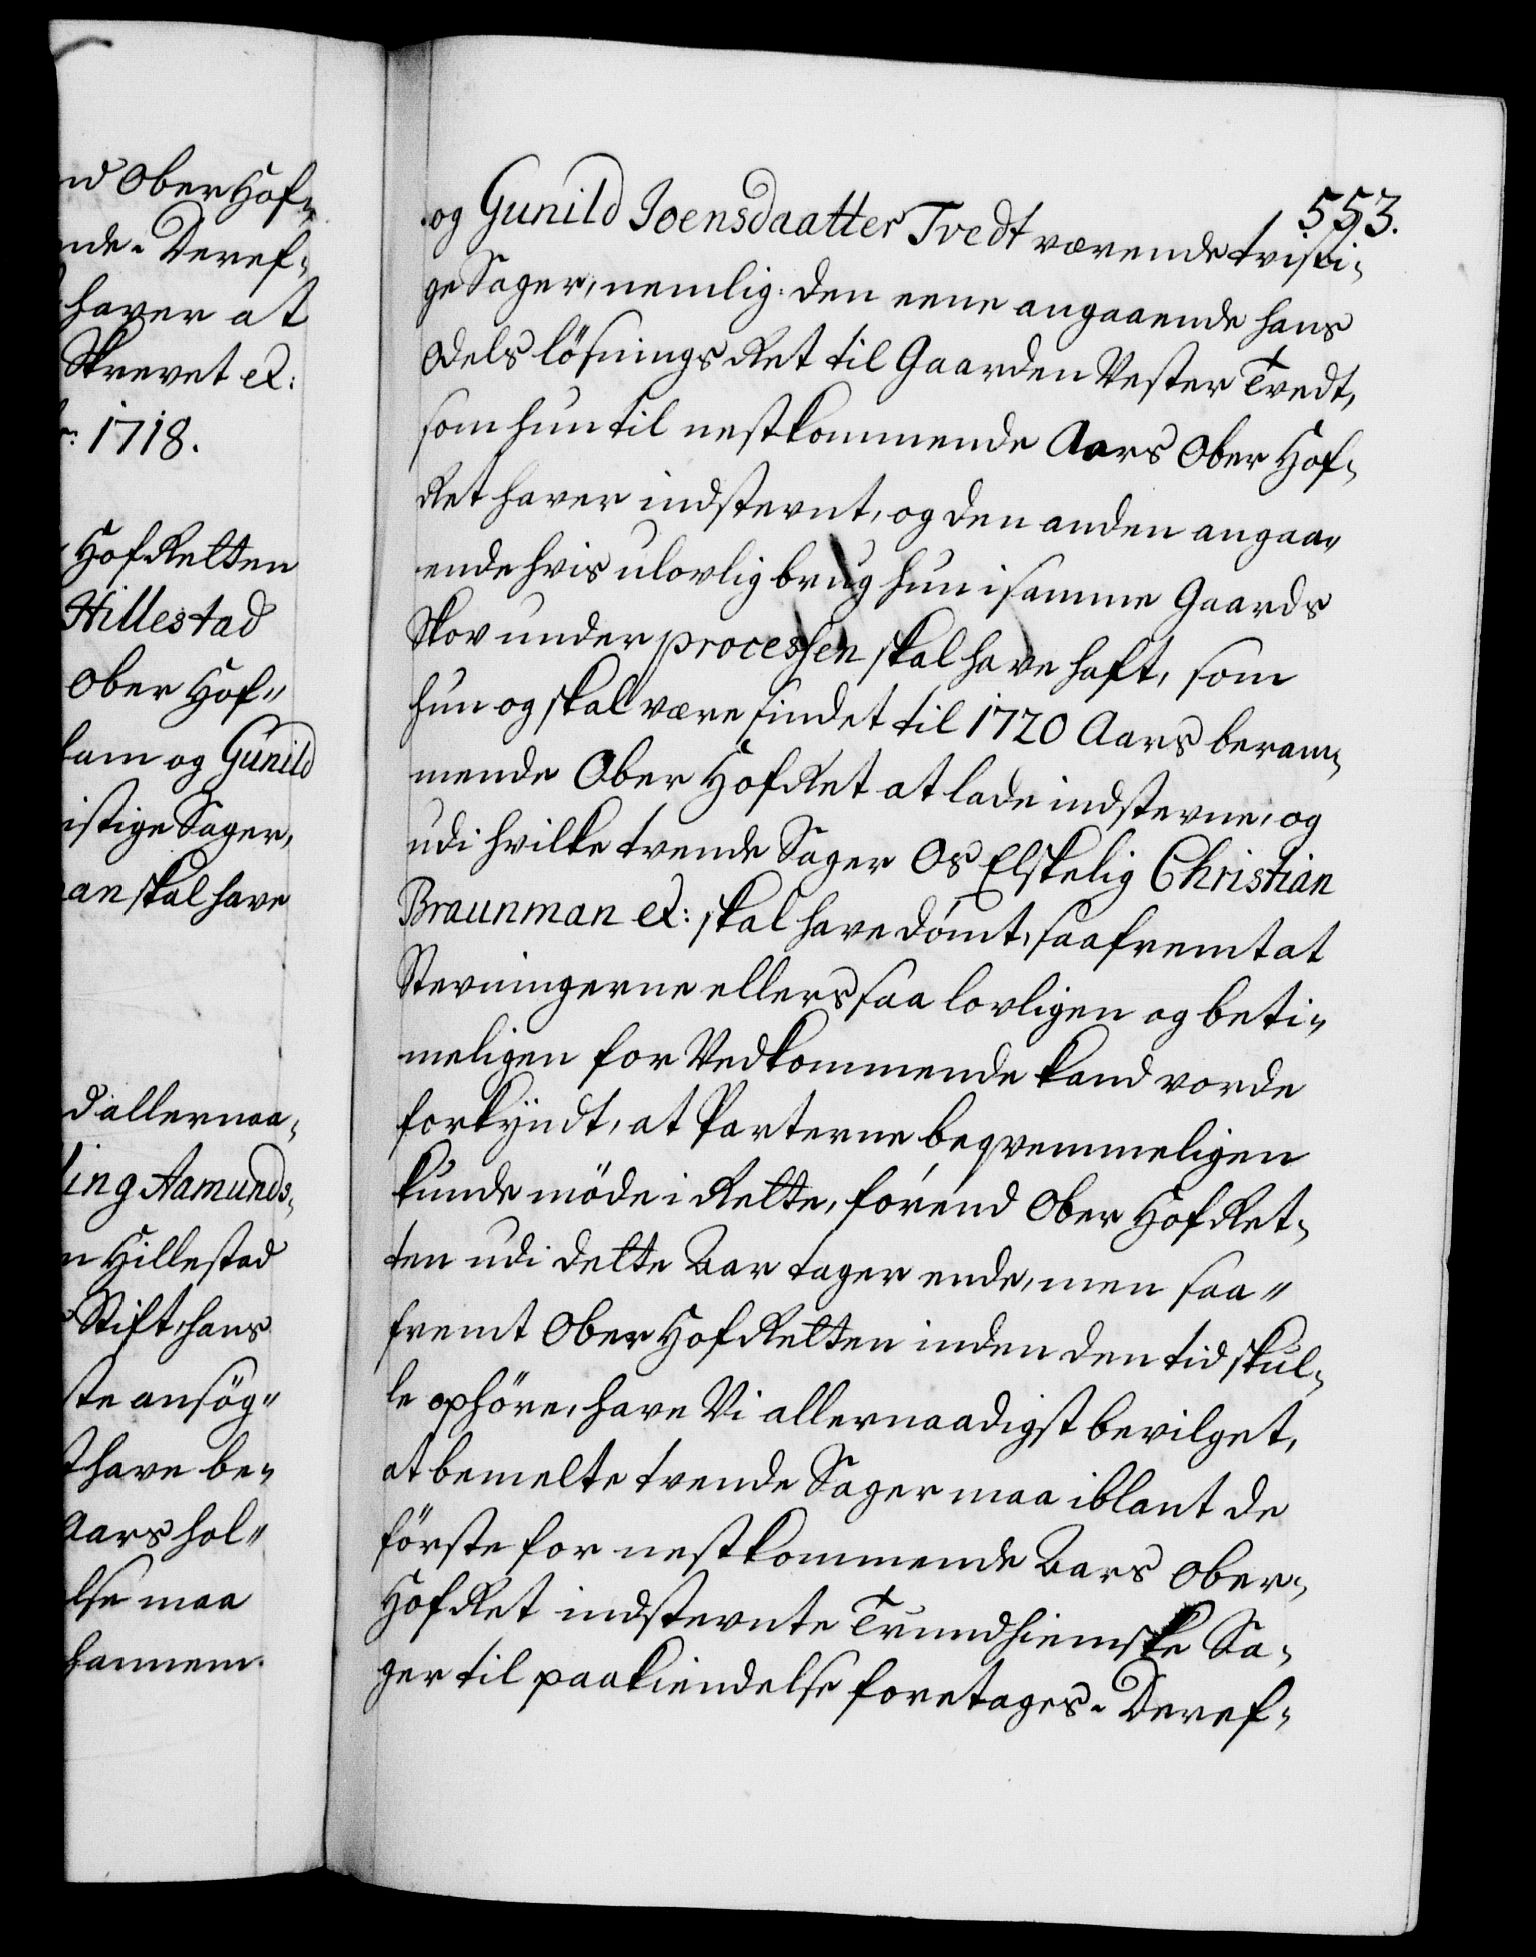 nd Ober Hof-
nde. Deref-
haver at
Skrevet etc:
r: 1718.
HofRetten
Hillestad
Ober Hof-
ham og Gunild
istige Sager,
an skal have
d allernaa-
ling Aamunds-
n Hillestad
Stift, hans
ste ansøg-
t have be-
Aars hol-
lse maa
hannem.
553.
og Gunild Joensdaatter Tvedt værende tvisti-
ge Sager, nemlig: den eene angaaende hans
Odels løsnings Ret til Gaarden Vester Tvedt,
som hun til nestkommende Aars Ober Hof-
Ret haver indstevnt, og den anden angaa-
ende hvis ulovlig brug hun i samme Gaards
Skov under processen skal have haft, som
hun og skal være sindet til 1720 Aars beram-
mende Ober HofRet at lade indstevne, og
udi hvilke tvende Sager Os Elskelig Christian
Braunman etc: skal have dømt, saafremt at
Stevningerne ellers saa lovligen og beti-
meligen for Vedkommende kand vorde
forkyndt, at Parterne beqvemmeligen
kunde møde i Rette, førend Ober HofRet-
ten udi dette Aar tager ende, men saa-
fremt Ober HofRetten inden den tid skul-
le ophøre, have Vi allernaadigst bevilget,
at bemelte tvende Sager maa iblant de
første for nestkommende Aars Ober-
HofRet indstevnte Trundhiemske Sa-
ger til paakiendelse foretages. Deref-